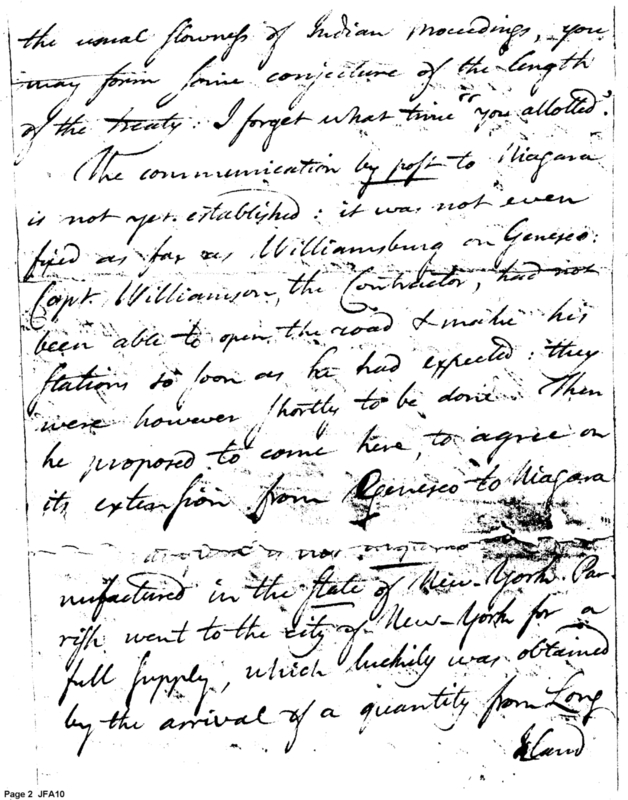 the usual slowness of Indian proceedings, you
may form some conjecture of the length
of the treaty: I forget what time "you allotted."
The communication by post to Niagara
is not yet established: it was not even
fixed as far as Williamsburg on Geneseo:
Capt. Williamson, the Contractor, had not
been able to open the road & make his
stations so soon as he had expected: they
were however shortly to be done. Then
he proposed to come here, to agree on
its extension from Geneseo to Niagara
is not
nufactured in the State of New-York. Par-
rish went to the city of New-York for a
full supply, which luckily was obtained
by the arrival of a quantity from Long
Island
Page 2 JFA10